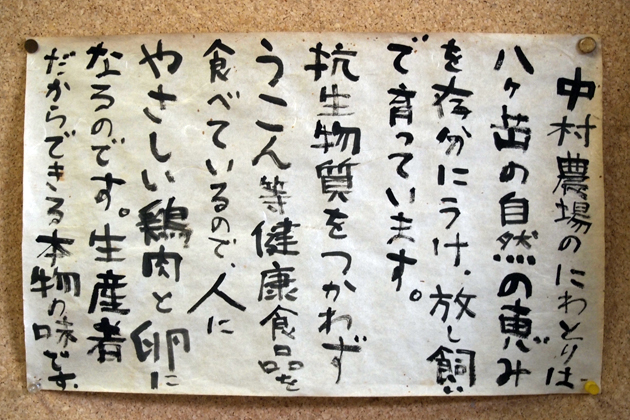 中村農場のにわとりは
八ヶ岳の自然の恵み
を存分にうけ、放し飼い
で育っています。
抗生物質をつかわず
うこん等健康食品を
食べているので、人に
やさしい鶏肉と卵に
なるのです。生産者
だからできる本物の味です。